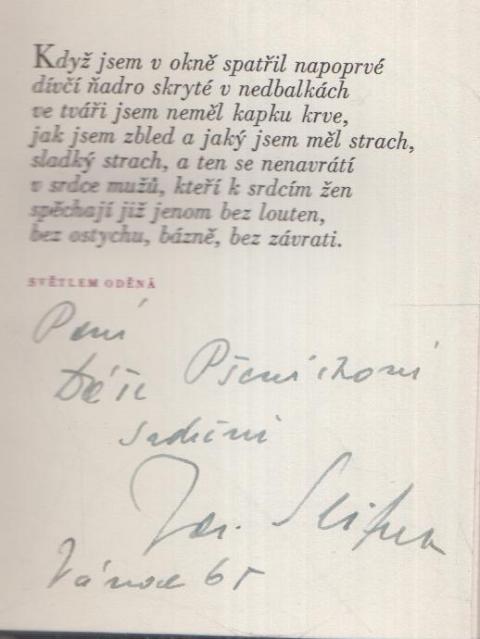 Když jsem v okně spatřil napoprvé
dívčí ňadro skryté v nedbalkách
ve tváři jsem neměl kapku krve,
jak jsem zbled a jaký jsem měl strach,
sladký strach, a ten se nenavrátí
v srdce mužů, kteří k srdcím žen
spěchají již jenom bez louten,
bez ostychu, bázně, bez závrati.
SVĚTLEM ODĚNÁ
Paní
Pšeničkoví
srdečně
Jar. Seifert
Vánoce 65